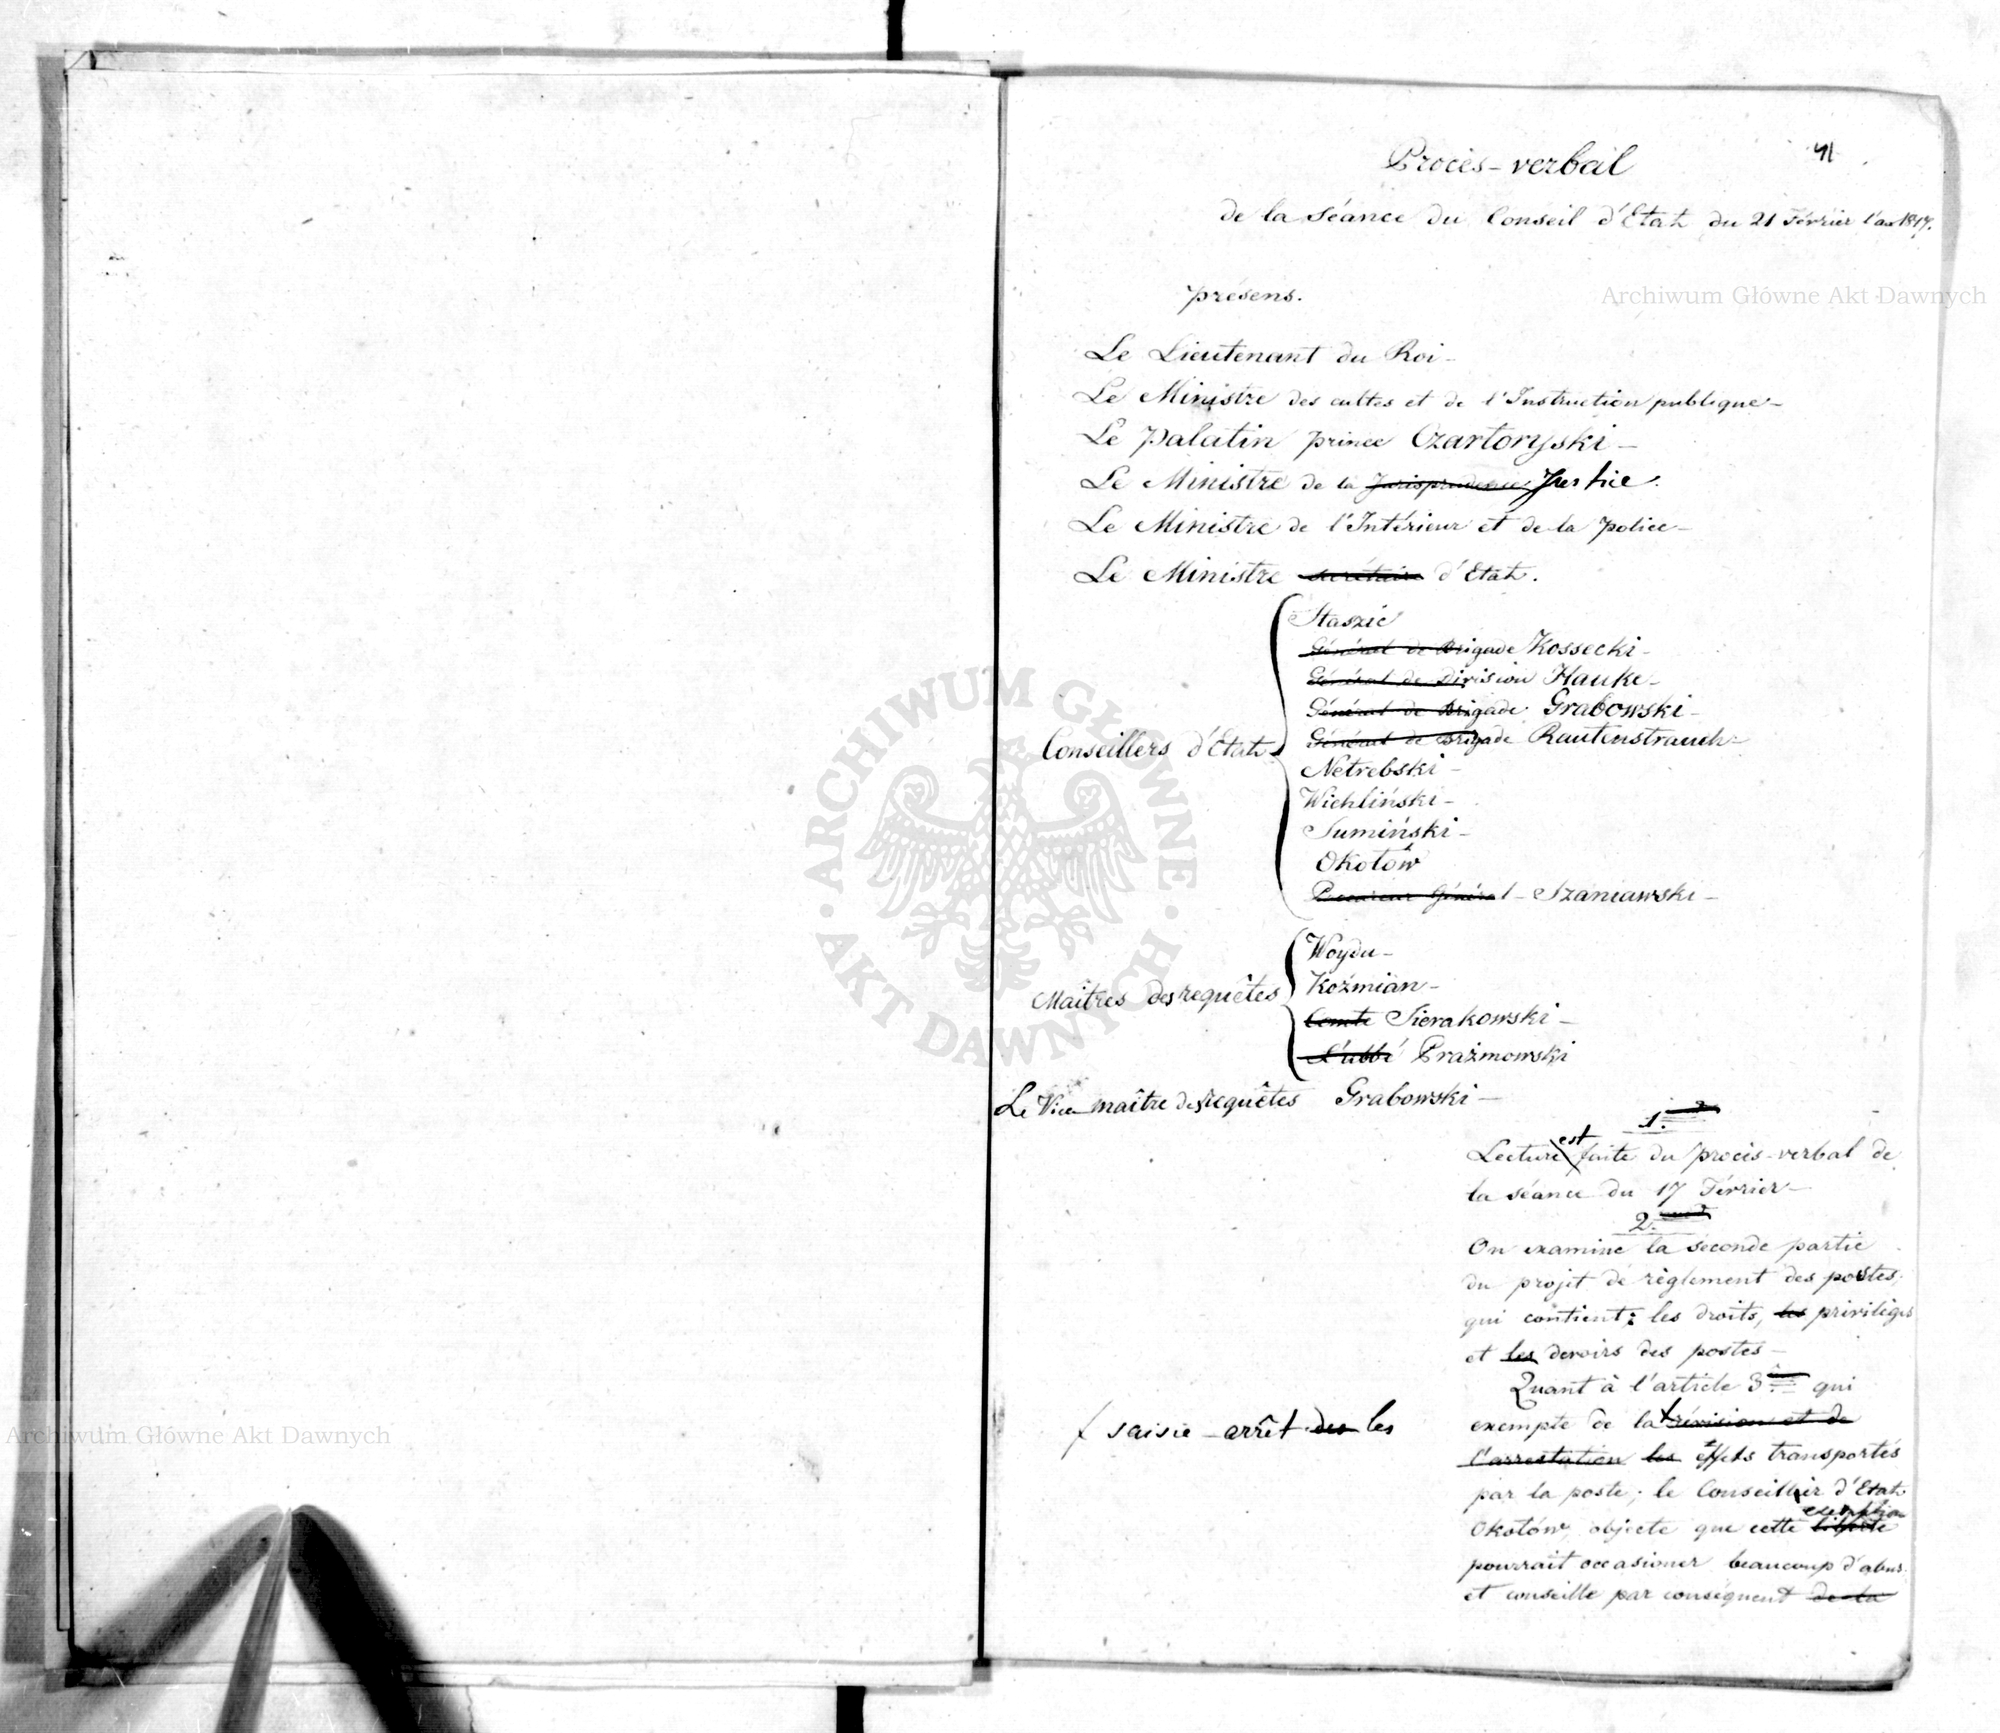 41
Procès-verbal
de la séance du Conseil d'Etat du 21 Février l'an 1817.
présens.
Le Lieutenant du Roi -
Le Ministre des cultes et de l'Instruction publique -
Le Palatin prince Czartoryski -
Le Ministre de la Jurisprudence Justice.
Le Ministre de l'Intérieur et de la Police -
Le Ministre secrétaire d'Etat.
Conseillers d'Etat
Staszic
Général de Brigade Kossecki -
Général de Division Hauke -
Général de Brigade Grabowski -
Général de Brigade Rautenstrauch -
Netrebski -
Wichliński -
Sumiński -
Okołów
Procureur Général - Szaniawski -
Maîtres des requêtes
Woyda -
Koźmian -
Comte Sierakowski -
L'abbé Prażmowski
Le Vice-maître des requêtes Grabowski -
1.
Lecture est faite du procès-verbal de
la séance du 17 Février -
2.
On examine la seconde partie
du projet de règlement des postes,
qui contient: les droits, les privilèges
et les devoirs des postes -
Quant à l'article 3 qui
exempte de la révision et de
saisie-arrêt des les
l'arrestation les effets transportés
par la poste; le Conseiller d'Etat
Okołów, objecte que cette liberté exemption
pourrait occasioner beaucoup d'abus
et conseille par conséquent de la
Archiwum Główne Akt Dawnych
Archiwum Główne Akt Dawnych
ARCHIWUM GŁÓWNE AKT DAWNYCH